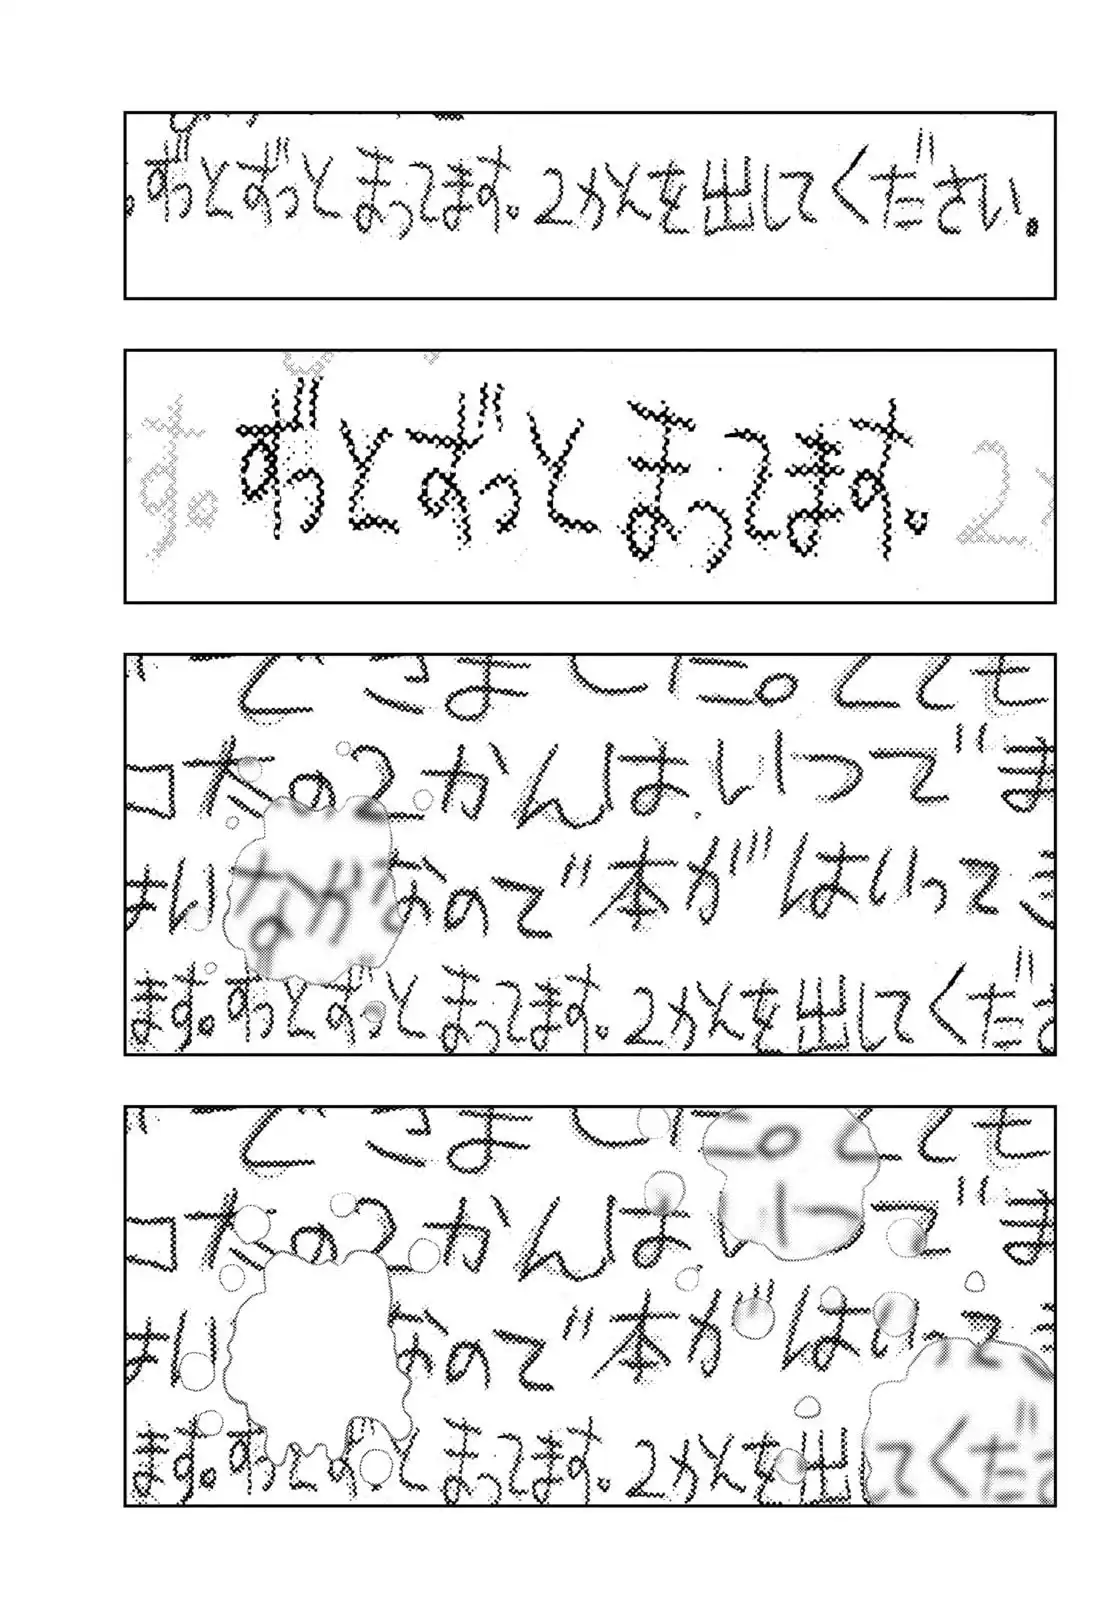 ずっとずっとまってます。2かんを出してください。
す。ずっとずっとまってます。2
できました。とても
コナの2かんはいつでま
なのでﾞ本がはいってき
ます。ずっとずっとまってます。2かんを出してくださ
できました
コナの2かんは
なのでﾞ本がはいってき
ます。ずっとずっとまってます。2かんを出してくださ